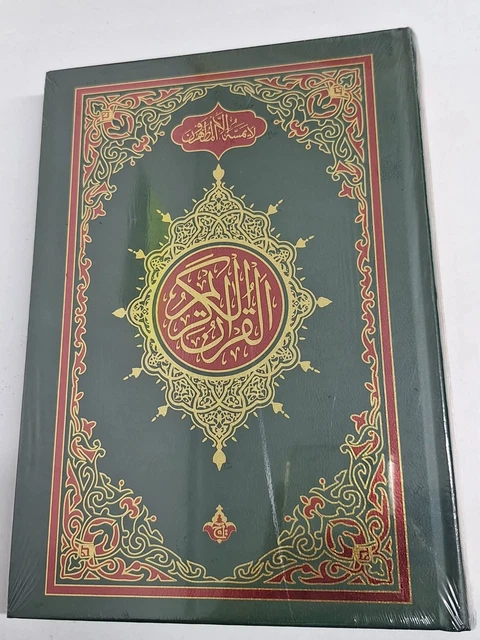 لا يمسه إلا المطهرون
القرآن الكريم